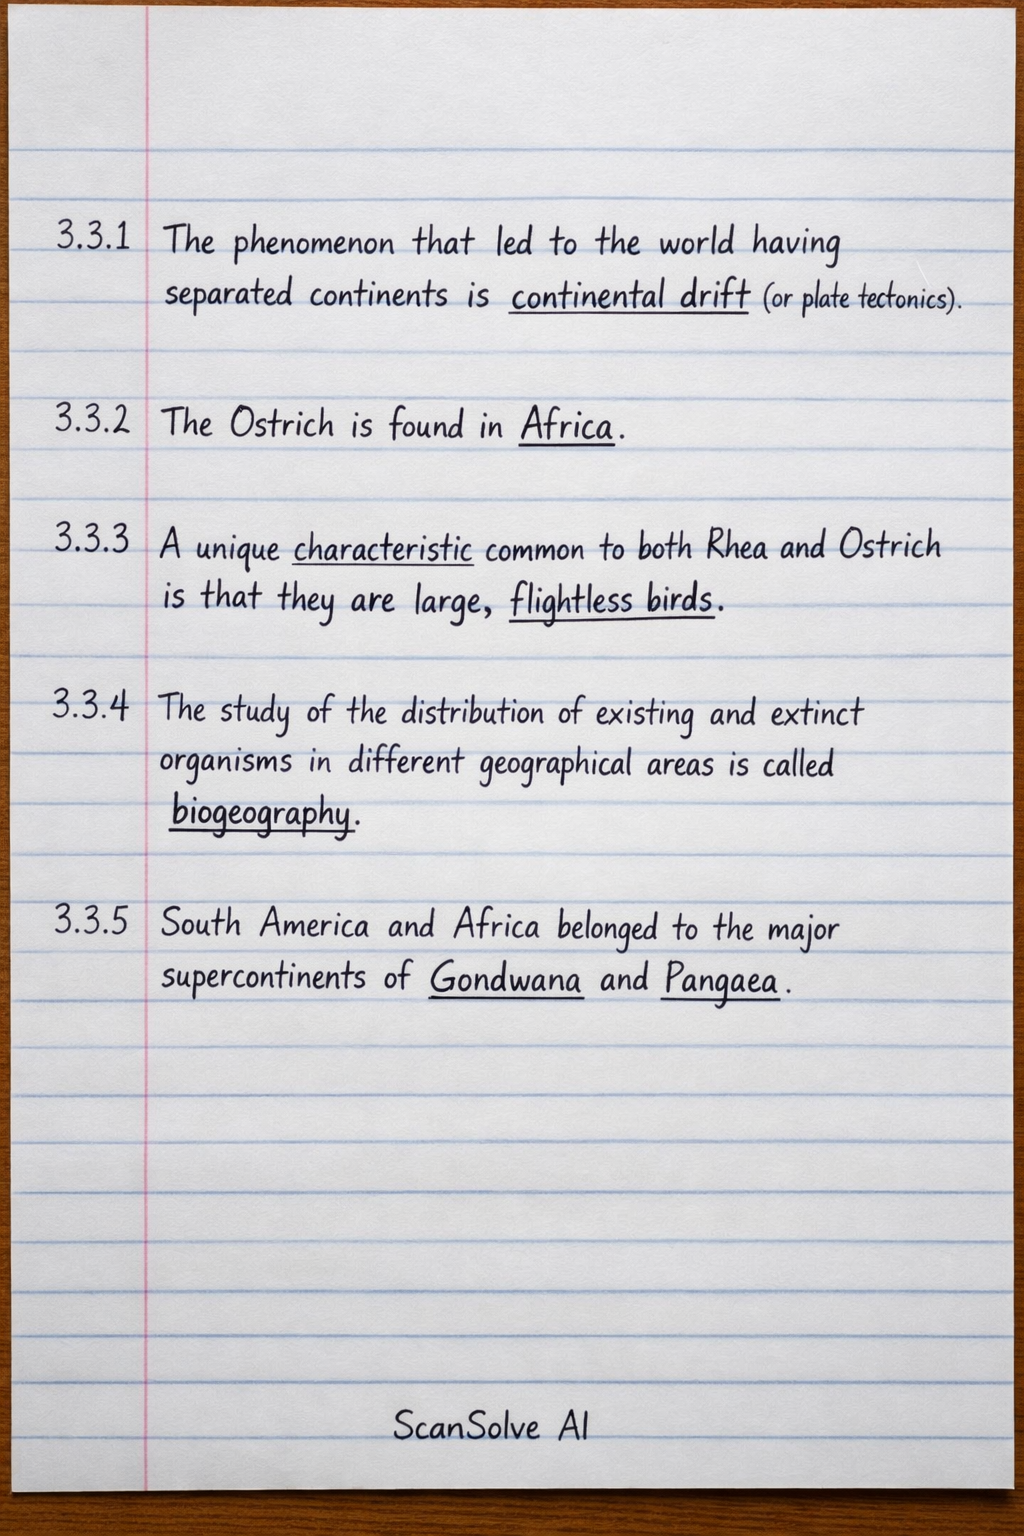 3.3.1 The phenomenon that led to the world having
separated continents is continental drift (or plate tectonics).
3.3.2 The Ostrich is found in Africa.
3.3.3 A unique characteristic common to both Rhea and Ostrich
is that they are large, flightless birds.
3.3.4 The study of the distribution of existing and extinct
organisms in different geographical areas is called
biogeography.
3.3.5 South America and Africa belonged to the major
supercontinents of Gondwana and Pangaea.
ScanSolve AI